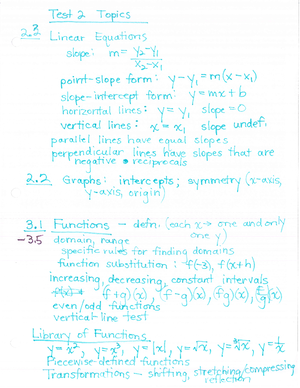 Test 2 Topics
2.3 Linear Equations
slope: m = y₂-y₁ / x₂-x₁
point-slope form: y-y₁ = m(x-x₁)
slope-intercept form: y = mx + b
horizontal lines: y = y₁ slope = 0
vertical lines: x = x₁ slope undef.
parallel lines have equal slopes
perpendicular lines have slopes that are
negative reciprocals
2.2 Graphs: intercepts; symmetry (x-axis,
y-axis, origin)
3.1 Functions - defn. (each x → one and only
one y)
-3.5 domain, range
specific rules for finding domains
function substitution: f(-3), f(x+h)
increasing, decreasing, constant intervals
(f+g)(x), (f-g)(x), (fg)(x), (f/g)(x)
even/odd functions
vertical-line test
Library of Functions
y=x², y=x³, y=|x|, y=√x, y=∛x, y=1/x
Piecewise-defined functions
Transformations - shifting, stretching/compressing
reflection